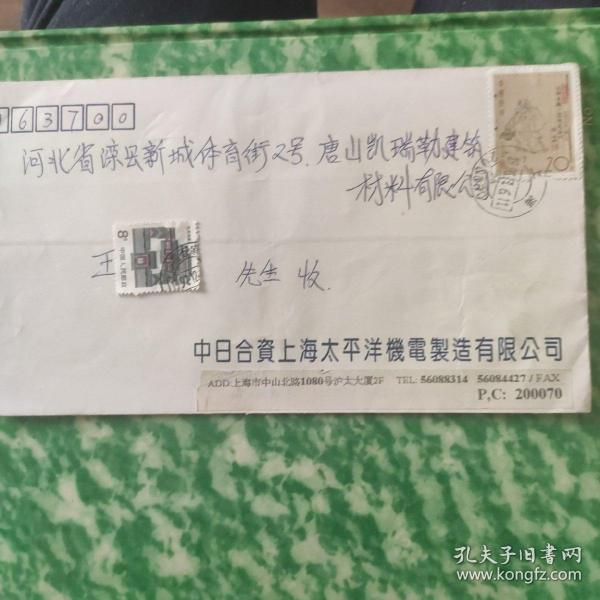 063700
河北省滦县新城体育街2号.唐山凯瑞勒建筑
材料有限公司
20
8分
中国人民邮政
王
先生 收.
中日合資上海太平洋機電製造有限公司
ADD:上海市中山北路1080号沪太大厦2F TEL: 56088314 56084427 / FAX
P,C: 200070
孔夫子旧书网
www.kongfz.com